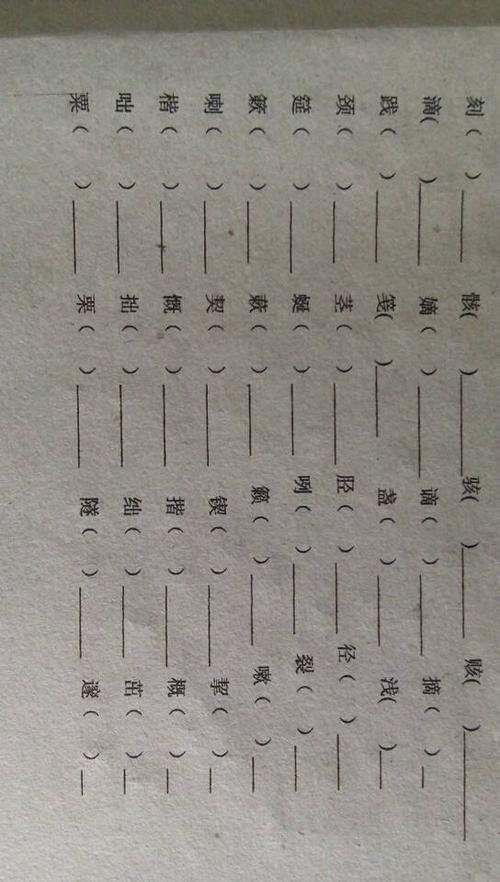 刻( )____ 骸( )____ 骇( )____ 赅( )____
滴( )____ 嫡( )____ 谪( )____ 摘( )__
践( )____ 笺( )____ 盏( )____ 浅( )__
颈( )____ 茎( )____ 胫( )____ 径( )__
筵( )____ 蜒( )____ 咧( )____ 裂( )__
簌( )____ 蔌( )____ 籁( )____ 嗽( )__
喇( )____ 契( )____ 锲( )____ 挈( )__
楷( )____ 慨( )____ 揩( )____ 概( )__
咄( )____ 拙( )____ 绌( )____ 茁( )__
粟( )____ 栗( )____ 隧( )____ 邃( )__